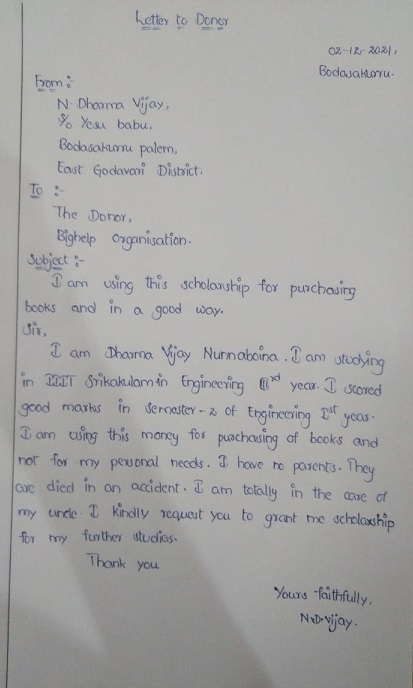 Letter to Donor
02-12-2021,
Bodasakurru.
From :-
N. Dharma Vijay,
S/o Yesu babu,
Bodasakurru palem,
East Godavari District.
To :-
The Donor,
Bighelp Organisation.
Subject :-
I am using this scholarship for purchasing
books and in a good way.
Sir,
I am Dharma Vijay Nunnaboina. I am studying
in IIIT Srikakulam in Engineering IIIrd year. I scored
good marks in semaster-2 of Engineering Ist year.
I am using this money for puschasing of books and
not for my personal needs. I have no parents. They
are died in an accident. I am totally in the care of
my uncle. I kindly request you to grant me scholarship
for my further studies.
Thank you
Yours faithfully,
N.D.Vijay.